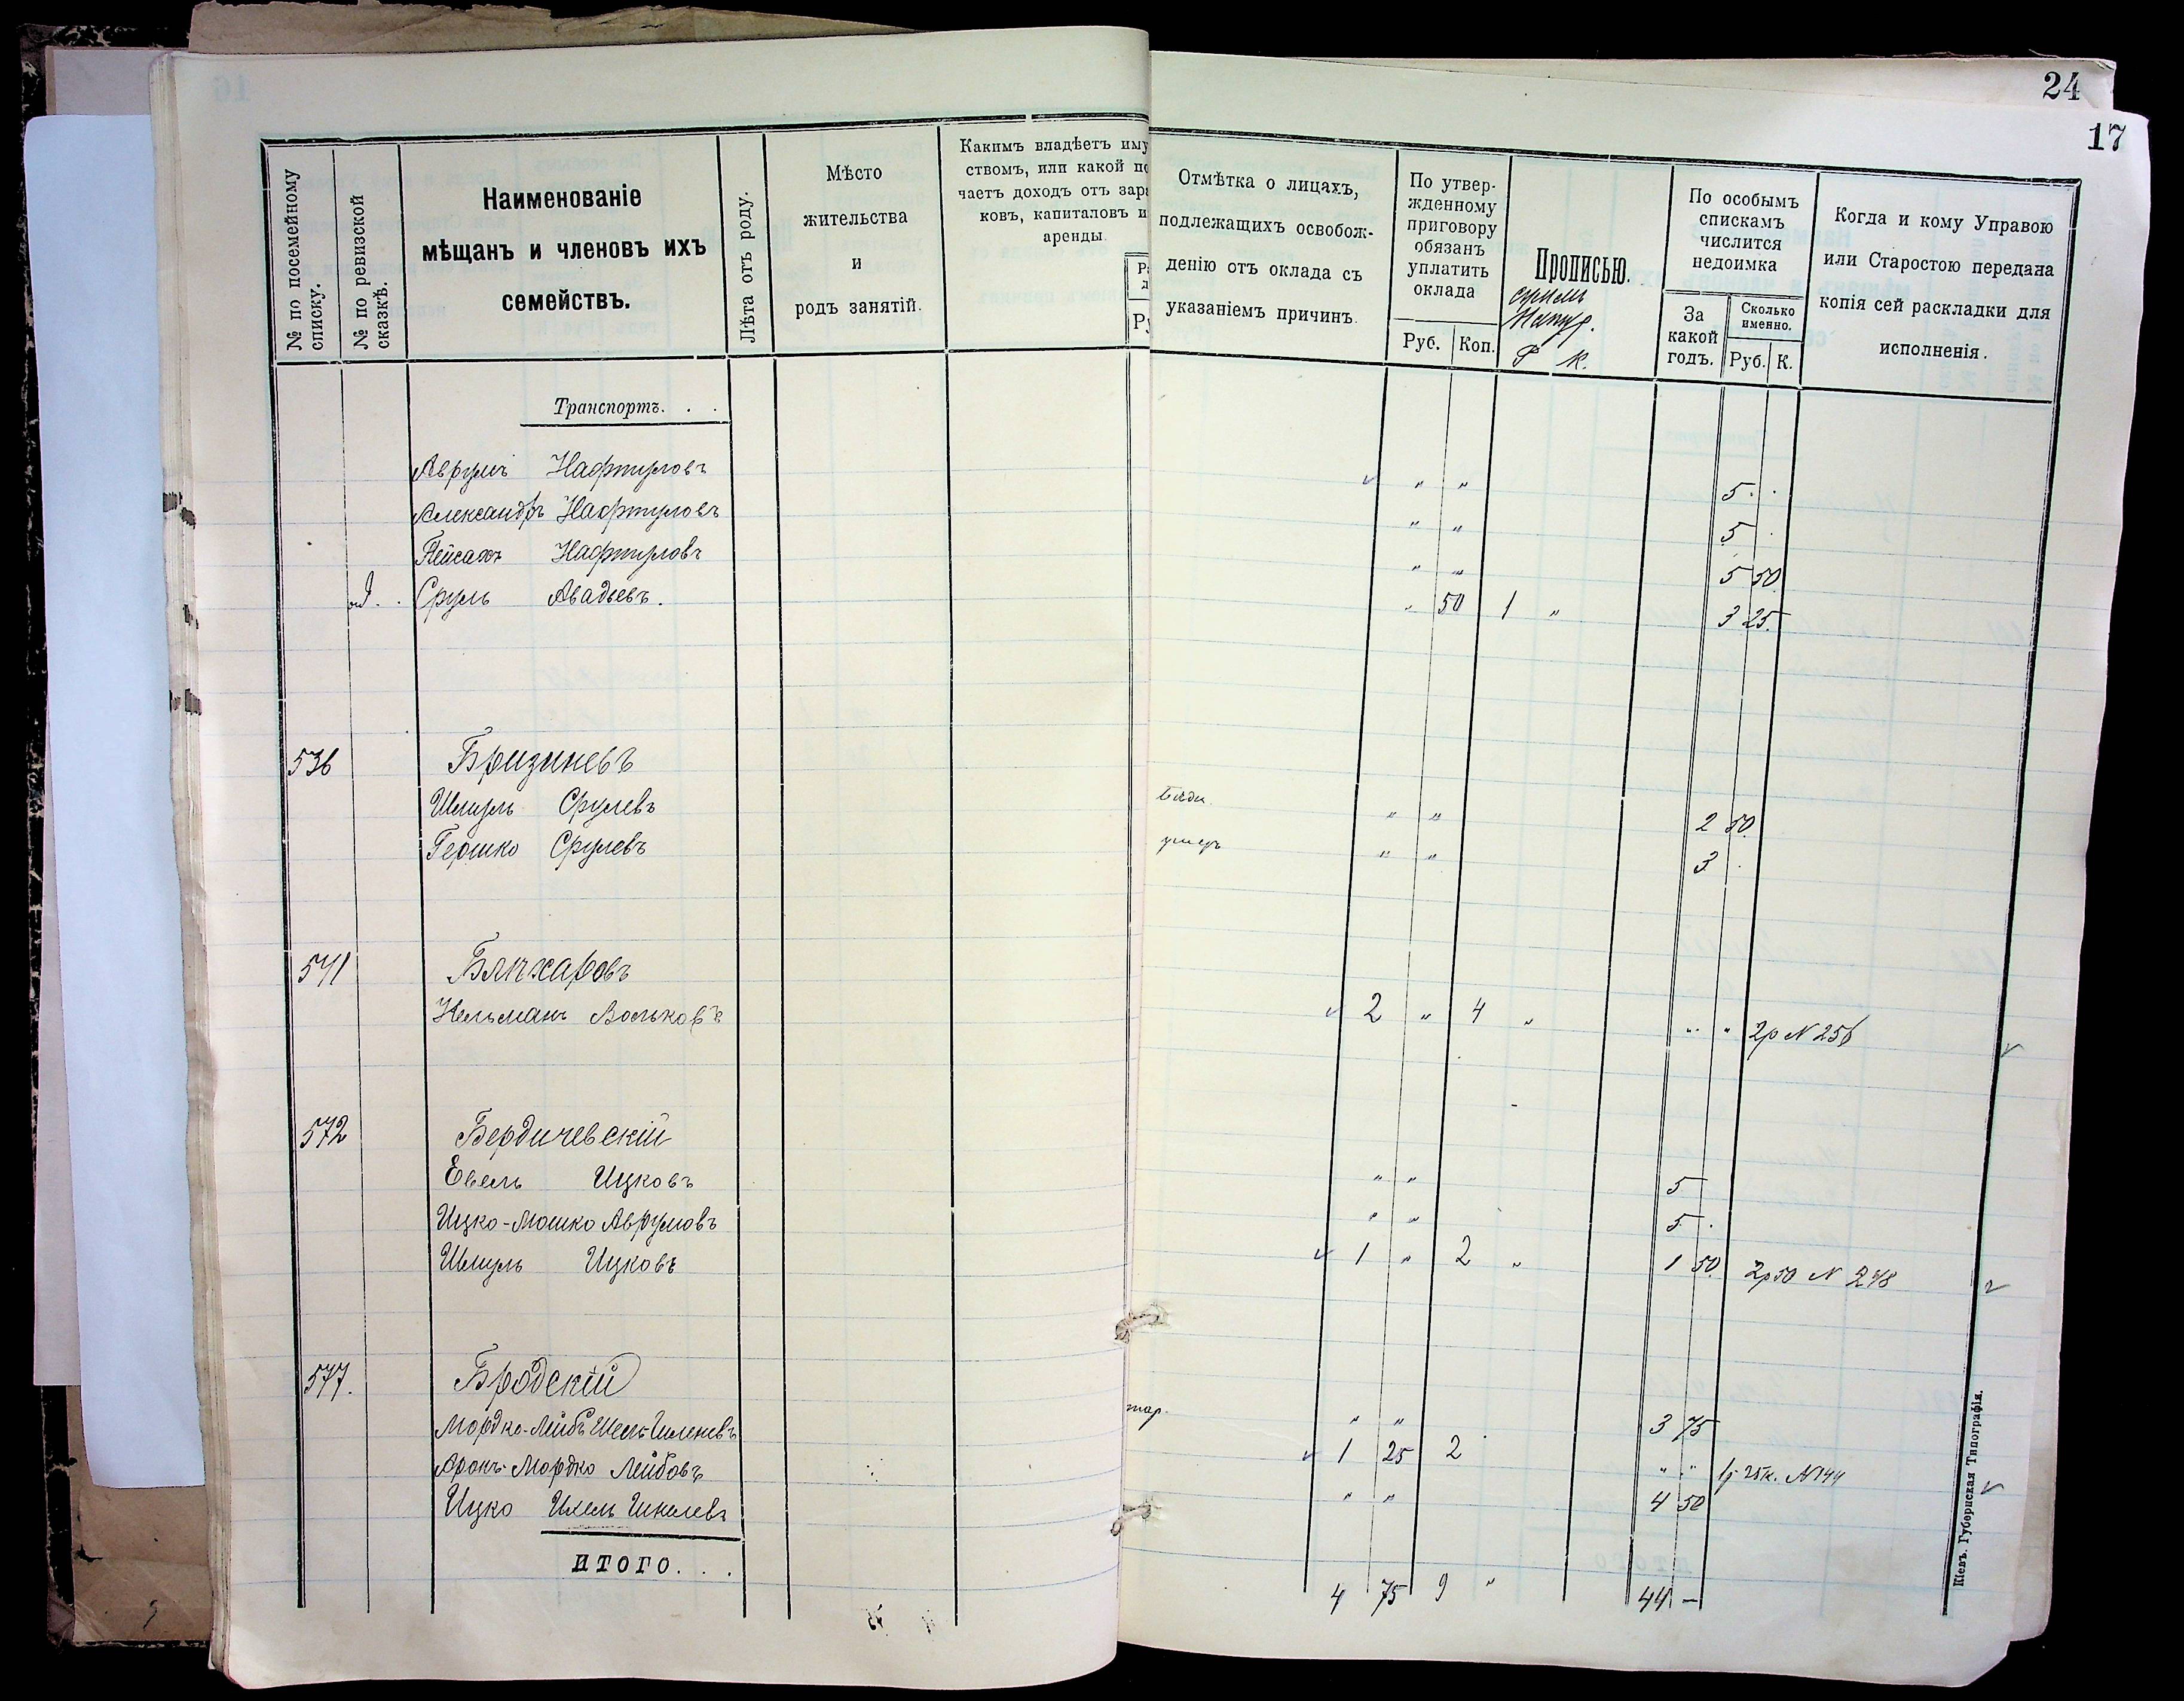 24
17
№ по посемейному списку.
№ по ревизской сказкѣ.
Наименованіе
мѣщанъ и членовъ ихъ
семействъ.
Лѣта отъ роду.
Мѣсто
жительства
и
родъ занятій.
Какимъ владѣетъ иму
ствомъ, или какой по
чаетъ доходъ отъ зара
ковъ, капиталовъ и
аренды.
Ру
Отмѣтка о лицахъ,
подлежащихъ освобож-
денію отъ оклада съ
указаніемъ причинъ.
По утвер-
жденному
приговору
обязанъ
уплатить
оклада
Руб. Коп.
Прописью.
Р К.
По особымъ
спискамъ
числится
недоимка
За
какой
годъ.
Сколько
именно.
Руб. К.
Когда и кому Управою
или Старостою передана
копія сей раскладки для
исполненія.
Транспортъ. . .
Аврумъ Нафтуловъ " " 5
Александръ Нафтуловъ " " 5
Пейсахъ Нафтуловъ " " 5 50
Сруль Авадьевъ. " 50 1 " 3 25.
536 Бризиневъ
Шмуль Срулевъ " " 2 50
Гершко Срулевъ " " 3
541
Кельманъ Вольковъ 2 " 4 " " " 2р N 256
572 Бердичевскій
Евель Ицковъ " " 5
Ицко-Мошко Аврумовъ " " 5
Шмуль Ицковъ 1 " 2 " 1 50. 2р50 N 248
577. Бродскій
Мордко-Лейбъ " " 3 75
Аронъ-Мордко Лейбовъ 1 25 2 " " 1р 25к. N144
Ицко " " 4 50
ИТОГО. . . 4 75 9 " 44 –
Кіевъ. Губернская Типографія.